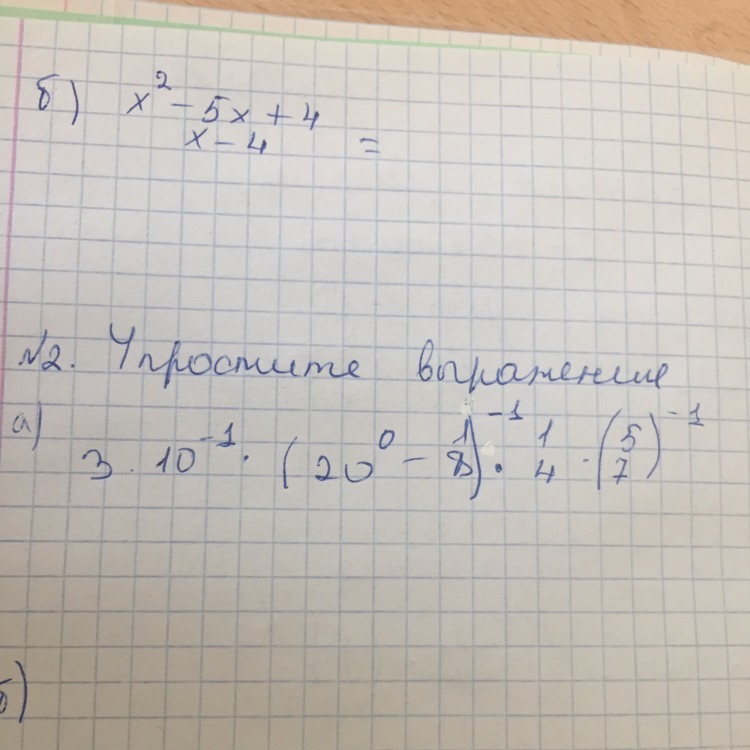 б) x² - 5x + 4
x - 4 =
№2. Упростите выражение
а) 3 · 10⁻¹ · (20⁰ - 1/8)⁻¹ · 1/4 · (5/7)⁻¹
б)